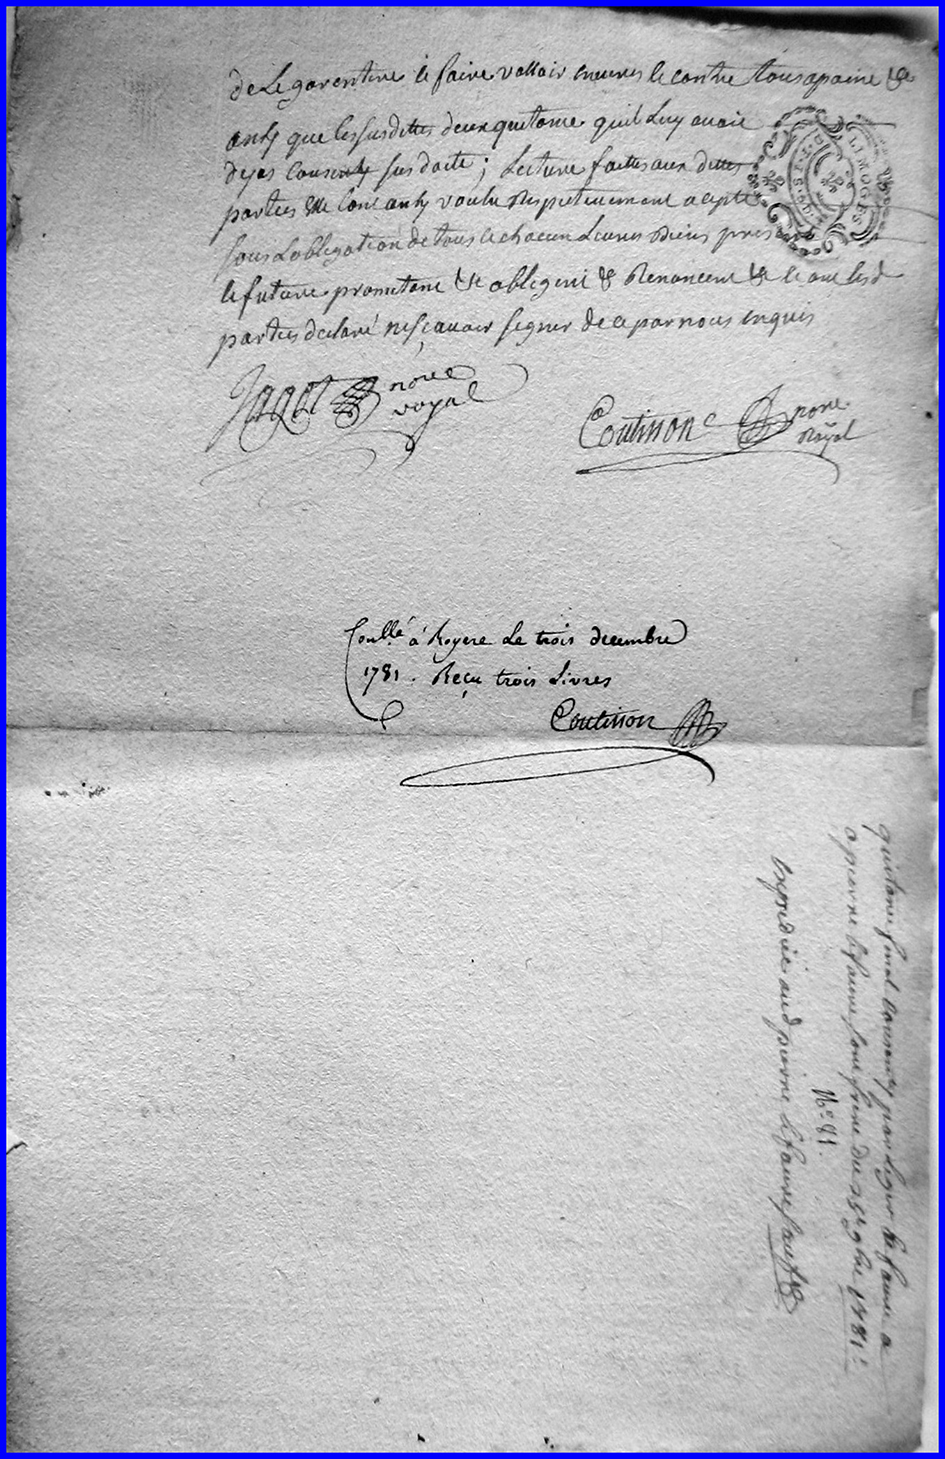 de Le garentire et faire vallair envers et contre tous apaine &c
ainsy que les susdittes deux quitance quil Luy avait
dejas consenty sus datte ; Lecture faittes aux dittes
parties &c lont ainsy voulu Respectivement acepté
sous Lobligation de tous et chacun Leurs Biens presant
et future prometant &c obligent & Renoncent &c et ont lesd
parties declaré ne sçavoir signer de ce par nous enquis
Jagot nore royal
Coutisson nore Royal
LIMOGES
Conllé á Royere Le trois decembre
1781. Reçu trois Livres
Coutisson
quitance final consenty par Leger Lefaure a
a pierre Lefaure sont frere du 25e 9bre 1781.
No 81.
Expediée aud pierre Lefaure